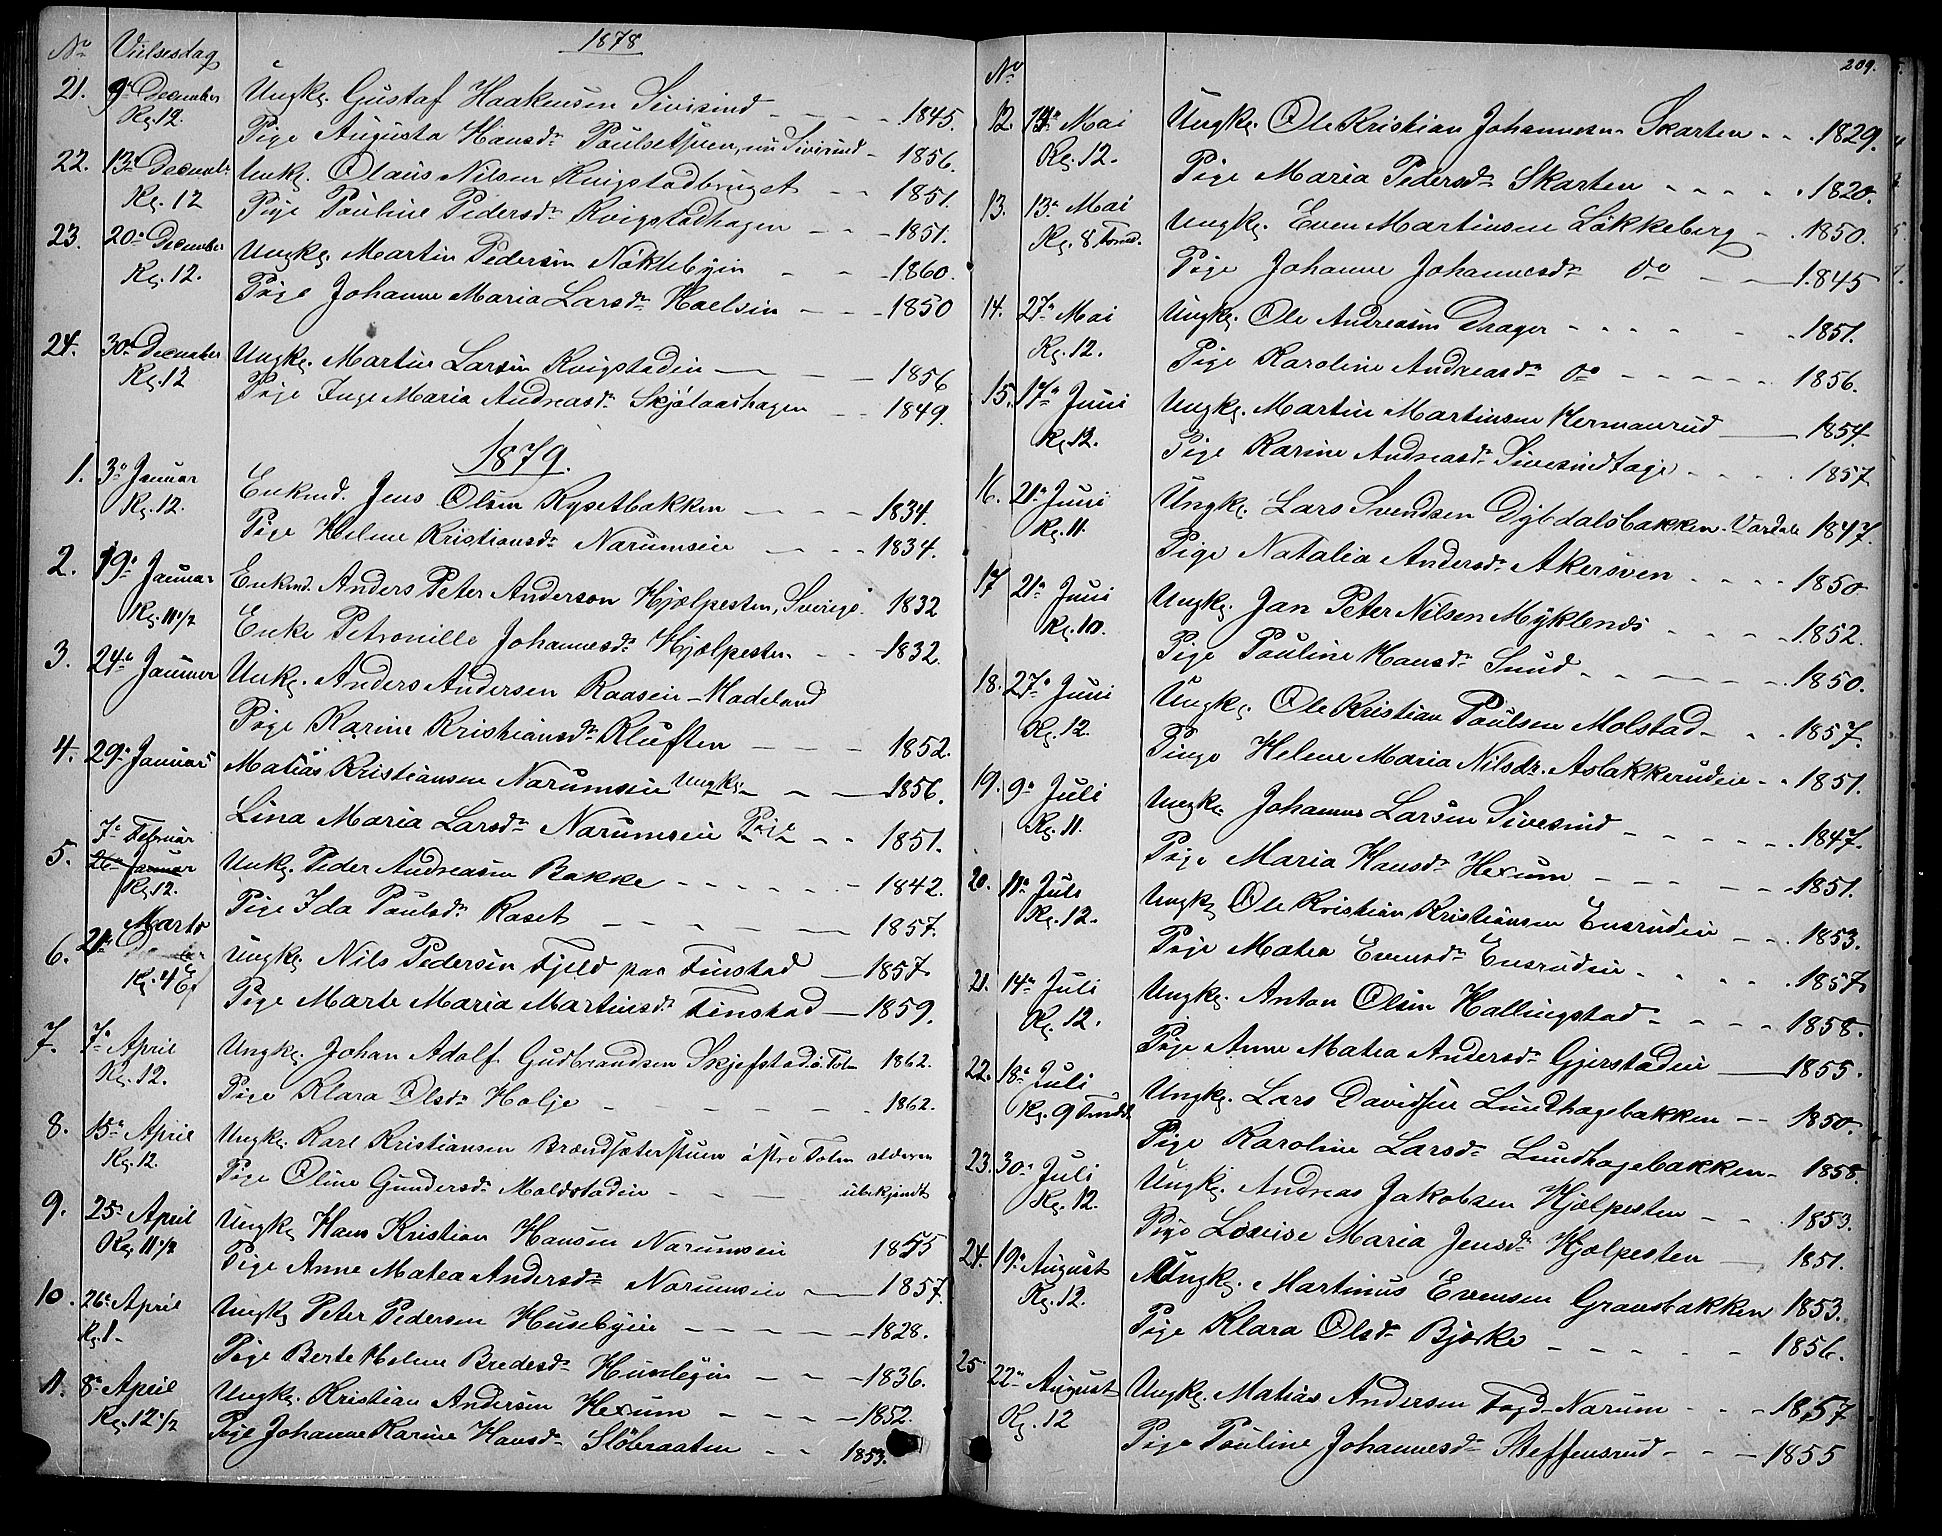 1878
No Vielsesdag
21. 9de December Ungkr. Gustaf Haakensen Sivisind 1845.
Kg. 12. Pige Augusta Hansdr. Paulsetstuen, nu Sivisind 1856.
22. 13de December Unkr. Olaus Nilsen Kvigstadbruget 1851.
Kg. 12 Pige Pauline Pedersdr. Kvigstadhagen 1851.
23. 20de December Ungkr. Martin Pedersen Nöklebyin 1860.
Kg. 12. Pige Johanne Maria Larsdr. Hoelsin 1850
24. 30de December Ungkr. Martin Larsen Kvigstadin 1856
Kg. 12 Pige Inge Maria Andreasdr. Skjölaashagen 1849.
1879.
1. 3de Januar Enkmd. Jens Olsen Rysetbakken 1834.
Kg. 12. Pige Helene Kristiansdr. Narumseie 1834.
2. 19de Januar Enkmd. Anders Peter Anderson Hjælpesten, Sverige 1832
Kg. 11 1/2 Enke Petronille Johannesdr. Hjælpesten 1832.
3. 24de Januar Unkr. Anders Andersen Raaseie - Hadeland
Pige Karine Kristiansdr. Kluften 1852.
4. 29de Januar Matias Kristiansen Narumseie Ungkr. 1856.
Lina Maria Larsdr. Narumseie Pige 1851.
7de Februar
5. 26de Januar Unkr. Peder Andreasen Bakke 1842.
Kg. 12. Pige Ida Paulsdr. Roset 1857.
Marts
6. 21de Ungkr. Nils Pedersen Fjeld paa Finstad 1857
Kg. Pige Marte Maria Martinsdr. Finstad 1859.
7. 7de April Ungkr. Johan Adolf Gudbrandsen Skjefstad ö. Toten 1862.
Kg. 12. Pige Klara Olsdr. Holje 1862.
8. 15de April Ungkr. Karl Kristiansen Brændsæterstuen östre Toten alderen
Kg. 12. Pige Oline Gundersdr. Moldstadeie ubekjendt
9. 25de April Ungkr. Hans Kristian Hansen Narumseie 1855
Kg. 11 1/2 Pige Anne Matea Andersdr. Narumseie 1857.
10. 26de April Ungkr. Peter Pedersen Husebyeie 1828.
Kg. 1 Pige Berte Helene Bredesdr. Husebyeie 1836.
11. 8de April Ungkr. Kristian Andersen Hexum 1852.
Kg. 12 1/2 Pige Johanne Karine Hansdr. Slöbraaten 1853.
209.
No
12. Mai Ungkr. Ole Kristian Johannesen Skarten 1829.
Kg. 12. Pige Maria Pedersdr. Skarten 1820.
13. 13de Mai Ungkr. Even Martinsen Lökkeberg 1850.
Kg. 8 Pige Johanne Johannesdr. do 1845
14. 27de Mai Ungkr. Ole Andreasen Drager 1851.
Kg. 12. Pige Karoline Andreasdr. do 1856.
15. 17de Juni Ungkr. Martin Martinsen Hermanrud 1854
Kg. 12. Pige Karine Andreasdr. Sivesindtagje 1857
16. 21de Juni Ungkr. Lars Svendsen Dybdalsbakken - Vardal 1847.
Kg. 11 Pige Natalia Andersdr. Akersven 1850
17 21de Juni Ungkr. Jan Peter Nilsen Myklends 1852.
Kg. 10. Pige Pauline Hansdr. Sund 1850.
18. 27de Juni Ungkr. Ole Kristian Paulsen Molstad 1857.
Kg. 12. Pige Helene Maria Nilsdr. Aslakkerudeie 1851.
19. 9de Juli Ungkr. Johannes Larsen Sivesind 1847.
Kg. 11. Pige Maria Hansdr. Hexum 1851.
20. 11de Juli Ungkr. Ole Kristian Kristiansen Ensrudeie 1853.
Kg. 12. Pige Matea Evensdr. Ensrudeie 1857
21. 14de Juli Ungkr. Anton Olsen Hallingstad 1858.
Kg. 12. Pige Anne Matea Andersdr. Gjerstadeie 1855.
22. 18de Juli Ungkr. Lars Davidsen Lundhagebakken 1850.
Kg. 9 Pige Karoline Larsdr. Lundhagebakken 1858.
23. 30de Juli Ungkr. Andreas Jakobsen Hjælpesten 1853.
Kg. 12. Pige Lovise Maria Jensdr. Hjælpesten 1851.
24. 19de August Ungkr. Martinus Evensen Gransbakken 1853.
Kg. 12. Pige Klara Olsdr. Bjerke 1856.
25 22de August Ungkr. Matias Andersen Fogd-Narum 1857
Kg. 12 Pige Pauline Johannesdr. Steffensrud 1855